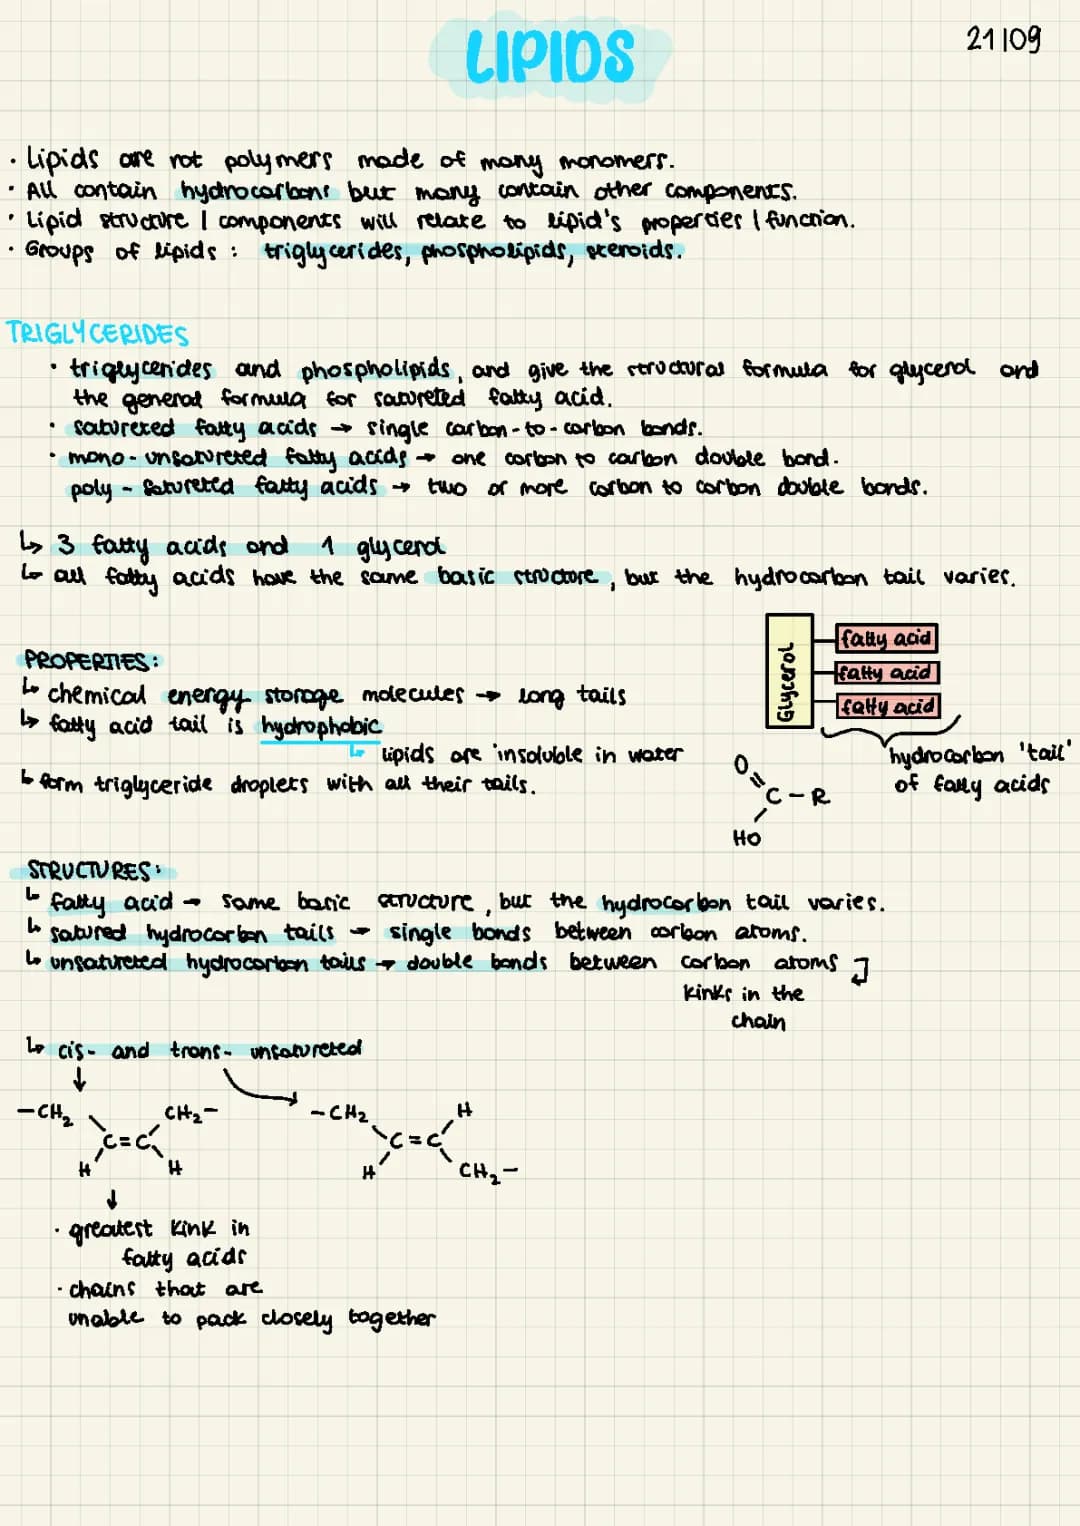 LIPIDS
21|09
· Lipids are not polymers made of many monomers.
· All contain hydrocarbons but many contain other components.
· Lipid structure | components will relate to lipid's properties | function.
· Groups of lipids : triglycerides, phospholipids, steroids.
TRIGLYCERIDES
· triglycerides and phospholipids, and give the structural formula for glycerol and
the general formula for satureted fatty acid.
· satureted fatty acids → single carbon-to-carbon bonds.
· mono-unsatureted fatty acids → one carbon to carbon double bond.
poly-satureted fatty acids → two or more carbon to carbon double bonds.
↳ 3 fatty acids and 1 glycerol
↳ all fatty acids have the same basic structure, but the hydrocarbon tail varies.
Glycerol
fatty acid
fatty acid
fatty acid
hydrocarbon 'tail'
of fatty acids
PROPERTIES:
↳ chemical energy storage molecules → long tails
↳ fatty acid tail is hydrophobic
↳ lipids are insoluble in water
↳ form triglyceride droplets with all their tails.
O
C - R
HO
STRUCTURES:
↳ fatty acid → same basic structure, but the hydrocarbon tail varies.
↳ satured hydrocarbon tails → single bonds between carbon atoms.
↳ unsatureted hydrocarbon tails → double bonds between carbon atoms
kinks in the
chain
↳ cis- and trans- unsatureted
-CH₂ CH₂-
C=C
H H
-CH₂ H
C=C
H CH₂-
· greatest kink in
fatty acids
· chains that are
unable to pack closely together